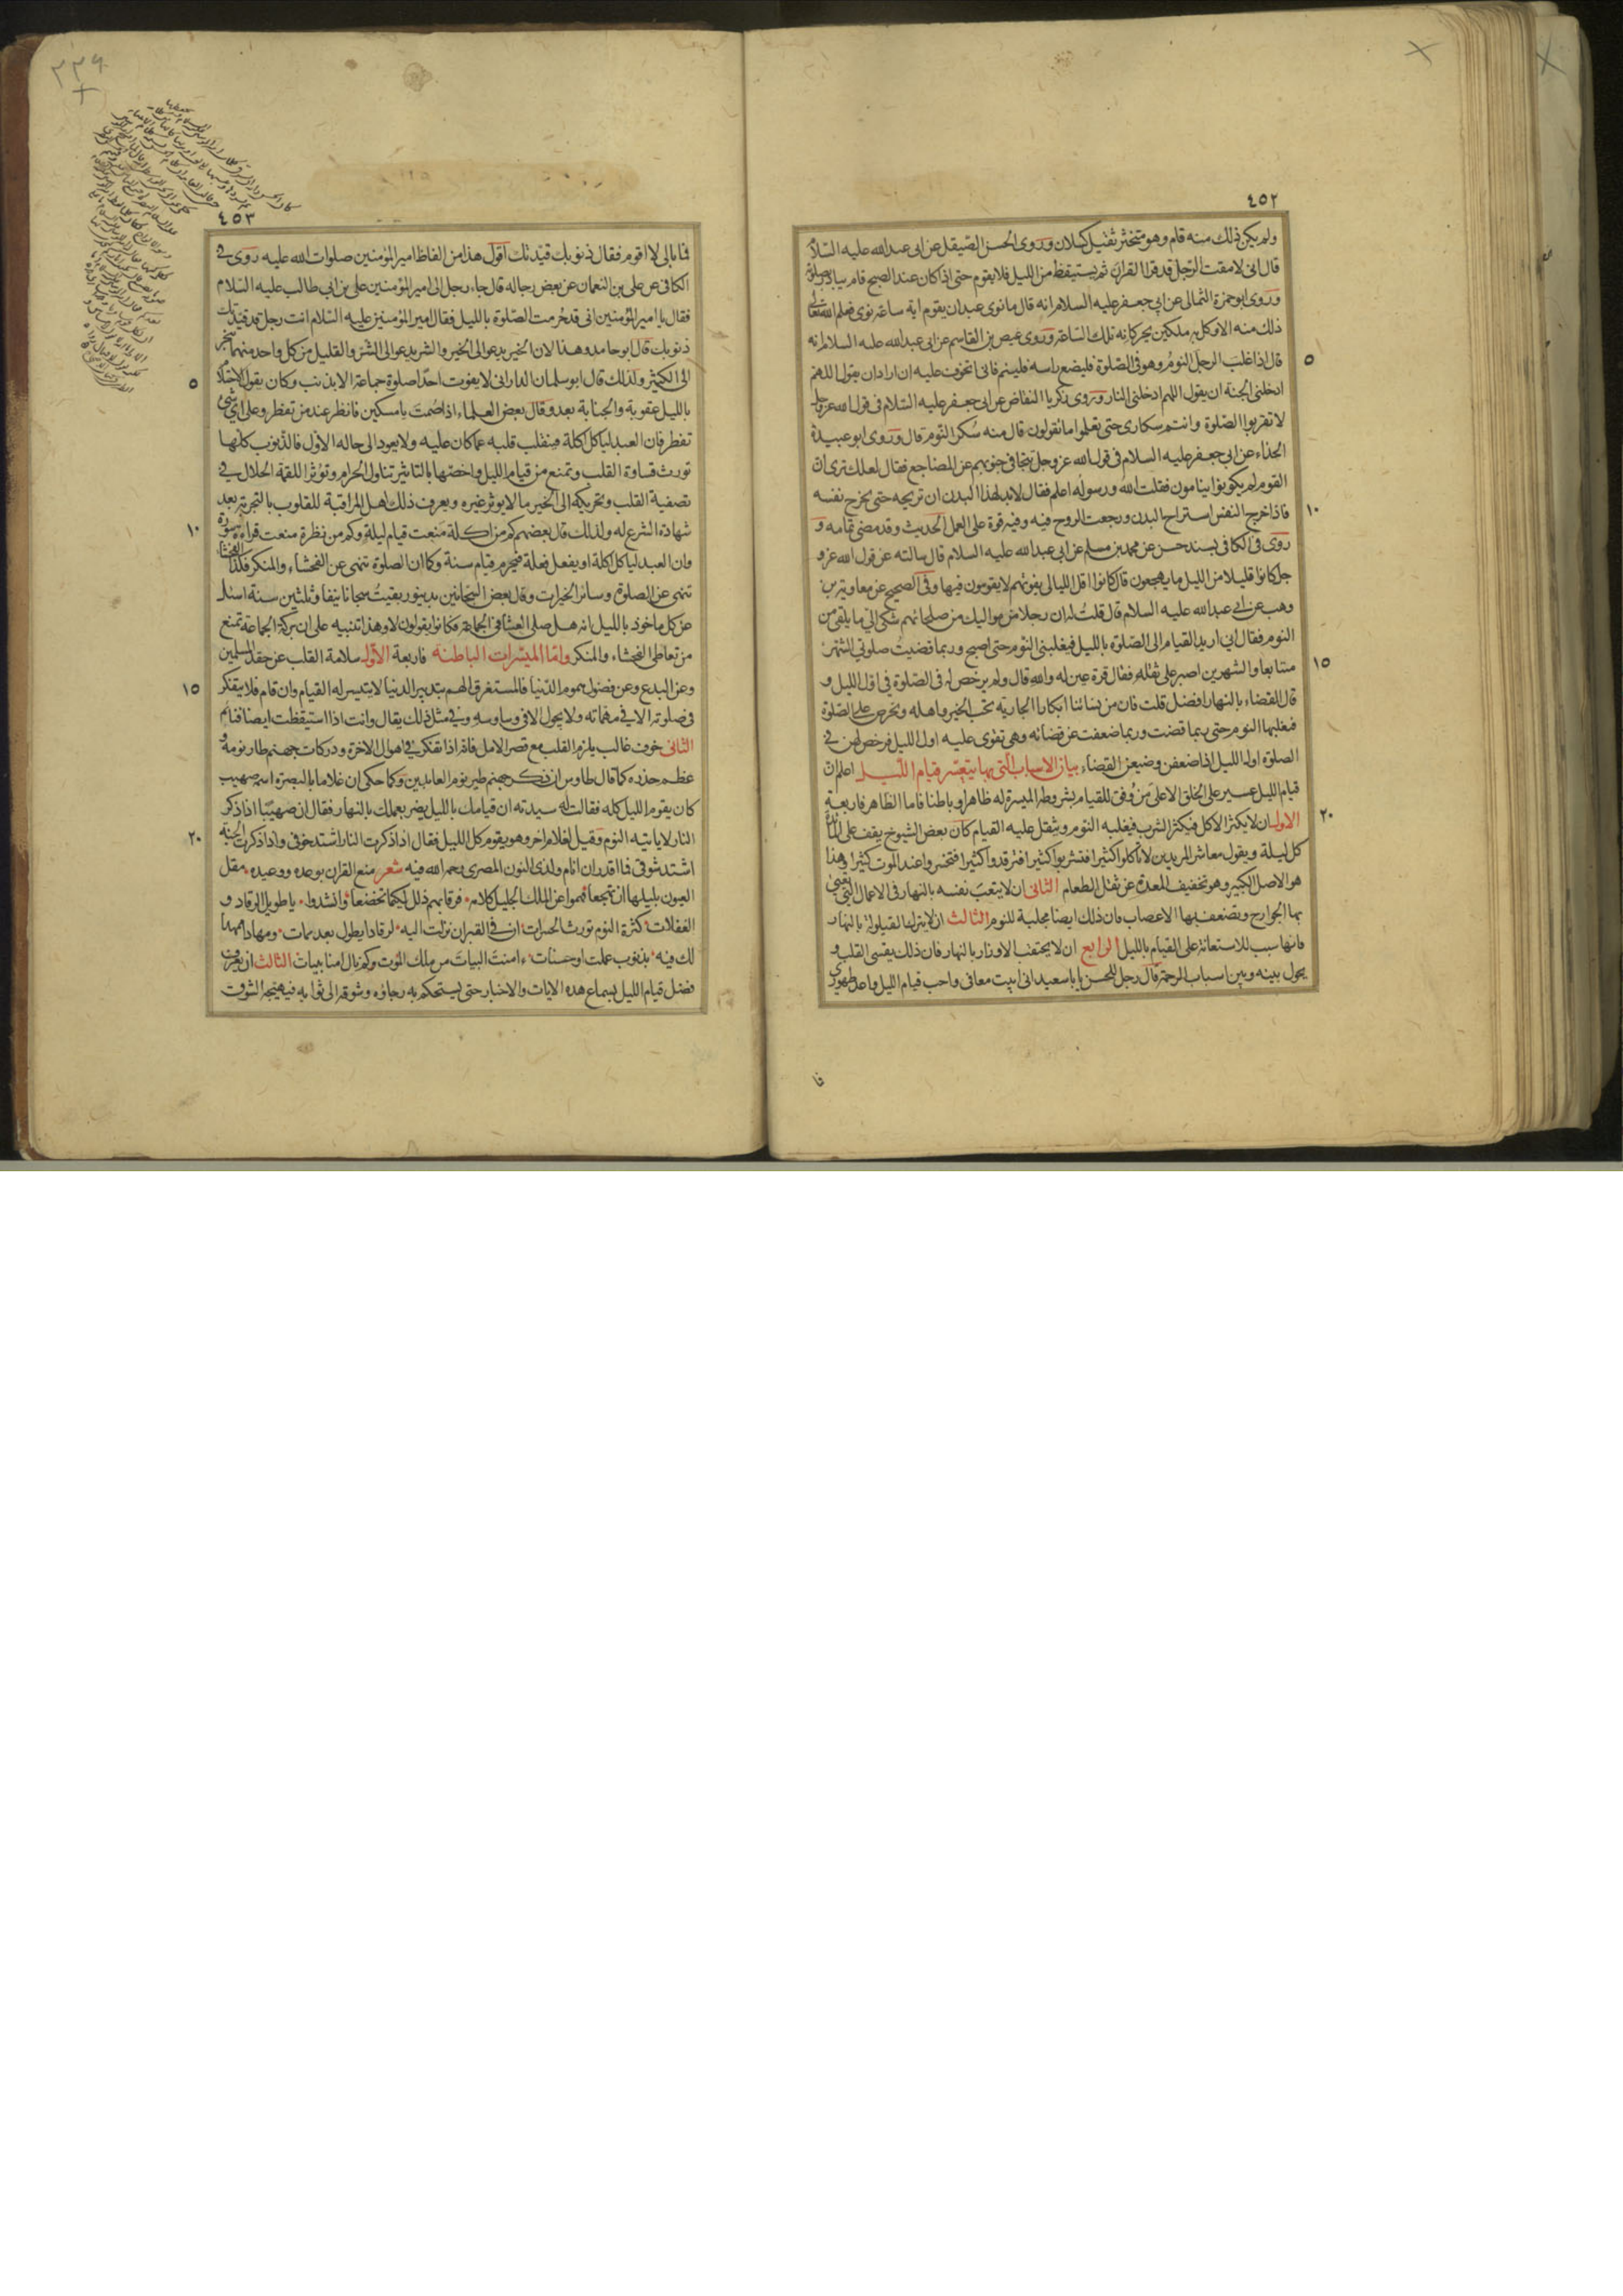 ٤٥٢
ولم يكن ذلك منه قام وهو متخثر ثقيل كسلان وروى الحسن الصيقل عن ابى عبد الله عليه السلام
قال انى لامقت الرجل قد قرا القران ثم يستيقظ من الليل فلا يقوم حتى اذا كان عند الصبح قام يبادر بصلوته
وروى ابو حمزة الثمالى عن ابى جعفر عليه السلام انه قال ما نوى عبد ان يقوم اية ساعة نوى فعلم الله تعالى
ذلك منه الا وكل به ملكين يحركانه تلك الساعة وروى عيص بن القاسم عن ابى عبد الله عليه السلام انه
٥
قال اذا غلب الرجل النوم وهو فى الصلوة فليضع راسه فلينم فانى اتخوف عليه ان اراد ان يقول اللهم
ادخلنى الجنة ان يقول اللهم ادخلنى النار وروى زكريا النقاض عن ابى جعفر عليه السلام فى قول الله عز وجل
لا تقربوا الصلوة وانتم سكارى حتى تعلموا ما تقولون قال منه سكر النوم قال وروى ابو عبيدة
الحذاء عن ابى جعفر عليه السلام فى قول الله عز وجل تتجافى جنوبهم عن المضاجع فقال لعلك ترى ان
القوم لم يكونوا ينامون فقلت الله ورسوله اعلم فقال لابد لهذا البدن ان تريحه حتى يخرج نفسه
١٠
فاذا خرج النفس استراح البدن ورجعت الروح فيه وفيه قوة على العمل الحديث وقد مضى تمامه و
روى فى الكافى بسند حسن عن محمد بن مسلم عن ابى عبد الله عليه السلام قال سالته عن قول الله عز و
جل كانوا قليلا من الليل ما يهجعون قال كانوا اقل الليالى يفوتهم لا يقومون فيها وفى الصحيح عن معاوية بن
وهب عن ابى عبد الله عليه السلام قال قلت له ان رجلا من مواليك من صلحائهم شكى الى ما يلقى من
النوم فقال انى اريد القيام الى الصلوة بالليل فيغلبنى النوم حتى اصبح وربما قضيت صلوتى الشهر
١٥
متتابعا والشهرين اصبر على ثقله فقال قرة عين له والله قال ولم يرخص له فى الصلوة فى اول الليل و
قال القضاء بالنهار افضل قلت فان من نسائنا ابكارا الجارية تحب الخير واهله وتحرص على الصلوة
فيغلبها النوم حتى ربما قضت وربما ضعفت عن قضائه وهى تقوى عليه اول الليل فرخص لهن فى
الصلوة اول الليل اذا ضعفن وضيعن القضاء بيان الاسباب التى بها يتيسر قيام الليل اعلم ان
قيام الليل عسير على الخلق الا على من وفق للقيام بشروطه الميسرة له ظاهرا وباطنا فاما الظاهر فاربعة
٢٠
الاول ان لا يكثر الاكل فيكثر الشرب فيغلبه النوم ويثقل عليه القيام كان بعض الشيوخ يقف على المائدة
كل ليلة ويقول معاشر المريدين لا تاكلوا كثيرا فتشربوا كثيرا فترقدوا كثيرا فتخسروا عند الموت كثيرا وهذا
هو الاصل الكبير وهو تخفيف المعدة عن ثقل الطعام الثانى ان لا يتعب نفسه بالنهار فى الاعمال التى يعيى
بها الجوارح وتضعف بها الاعصاب فان ذلك ايضا مجلبة للنوم الثالث ان لا يترك القيلولة بالنهار
فانها سبب للاستعانة على القيام بالليل الرابع ان لا يحتقب الاوزار بالنهار فان ذلك يقسى القلب و
يحول بينه وبين اسباب الرحمة قال رجل للحسن يا با سعيد انى ابيت معافى واحب قيام الليل واعد طهورى
فا
٤٥٣
فما بالى لا اقوم فقال ذنوبك قيدتك اقول هذا من الفاظ امير المؤمنين صلوات الله عليه روى فى
الكافى عن على بن النعمان عن بعض رجاله قال جاء رجل الى امير المؤمنين على بن ابى طالب عليه السلام
فقال يا امير المؤمنين انى قد حرمت الصلوة بالليل فقال امير المؤمنين عليه السلام انت رجل قد قيدتك
ذنوبك قال ابو حامد وهذا لان الخير يدعو الى الخير والشر يدعو الى الشر والقليل من كل واحد منهما يجر
٥
الى الكثير ولذلك قال ابو سليمان الدارانى لا يفوت احدا صلوة جماعة الا بذنب وكان يقول الاحتلام
بالليل عقوبة والجنابة بعد وقال بعض العلماء اذا صمت يا مسكين فانظر عند من تفطر وعلى اى شى
تفطر فان العبد لياكل اكلة فينقلب قلبه عما كان عليه ولا يعود الى حاله الاول فالذنوب كلها
تورث قساوة القلب وتمنع من قيام الليل واخصها بالتاثير تناول الحرام وتؤثر اللقمة الحلال فى
تصفية القلب وتحريكه الى الخير ما لا يوثر غيره ويعرف ذلك اهل المراقبة للقلوب بالتجربة بعد
١٠
شهادة الشرع له ولذلك قال بعضهم كم من اكلة منعت قيام ليلة وكم من نظرة منعت قراءة سورة
وان العبد لياكل اكلة او يفعل فعلة فيحرم قيام سنة وكما ان الصلوة تنهى عن الفحشاء والمنكر فكذا الفحشاء
تنهى عن الصلوة وسائر الخيرات وقال بعض السجانين بدينور بقيت سجانا نيفا وثلثين سنة اسئل
عن كل ماخوذ بالليل انه هل صلى العشا فى الجماعة فكانوا يقولون لا وهذا تنبيه على ان بركة الجماعة تمنع
من تعاطى الفحشاء والمنكر واما الميسرات الباطنة فاربعة الاول سلامة القلب عن حقد المسلمين
١٥
وعن البدع وعن فضول هموم الدنيا فالمستغرق الهم بتدبير الدنيا لا يتيسر له القيام وان قام فلا يتفكر
فى صلوته الا فى مهماته ولا يجول الا فى وساوسه وفى مثل ذلك يقال وانت اذا استيقظت ايضا فنائم
الثانى خوف غالب يلزم القلب مع قصر الامل فانه اذا تفكر فى اهوال الاخرة ودركات جهنم طار نومه و
عظم حذره كما قال طاوس ان ذكر جهنم طير نوم العابدين وكما حكى ان غلاما بالبصرة اسمه صهيب
كان يقوم الليل كله فقالت له سيدته ان قيامك بالليل يضر بعملك بالنهار فقال ان صهيبا اذا ذكر
٢٠
النار لا ياتيه النوم وقيل لغلام اخر وهو يقوم كل الليل فقال اذا ذكرت النار اشتد خوفى واذا ذكرت الجنة
اشتد شوقى فما اقدر ان انام ولذى النون المصرى رحمه الله فيه شعر منع القران بوعده ووعيده مقل
العيون بليلها ان تهجعا فهموا عن الملك الجليل كلامه فرقابهم ذلت اليه تخضعا وانشد يا طويل الرقاد و
الغفلات كثرة النوم تورث الحسرات ان فى القبر ان نزلت اليه لرقادا يطول بعد ممات ومهادا ممهدا
لك فيه بذنوب عملت او حسنات ءامنت البيات من ملك الموت وكم نال امنا ببيات الثالث ان يعرف
فضل قيام الليل بسماع هذه الايات والاخبار حتى يستحكم به رجاؤه وشوقه الى ثوابه فيهيجه الشوق